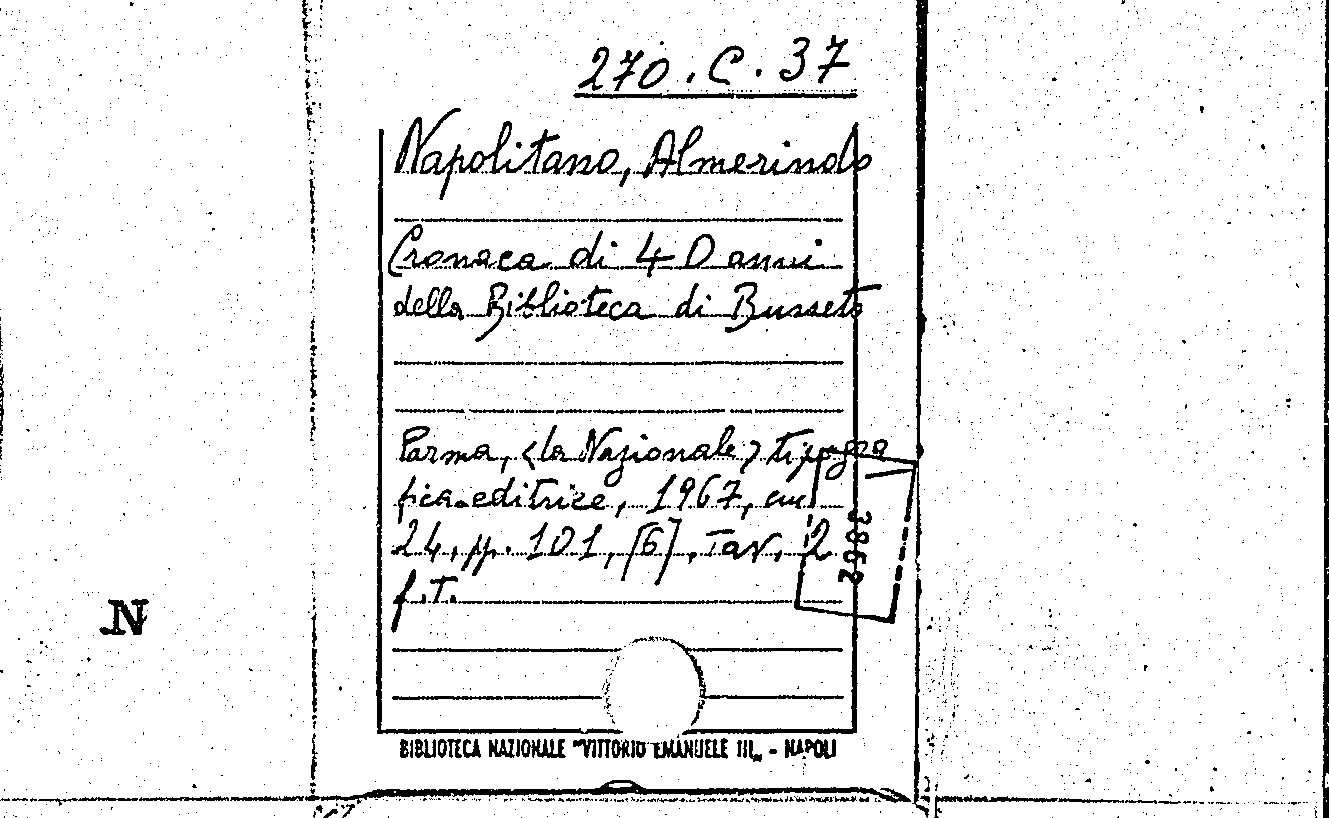 270.C.37
Napolitano, Almerindo
Cronaca di 40 anni
della Biblioteca di Busseto
Parma, <la Nazionale> tipogra
fica-editrice, 1967, cm
24, pp. 101, [6], Tav. 2
f.T.
3862
N
BIBLIOTECA NAZIONALE "VITTORIO EMANUELE III„ - NAPOLI